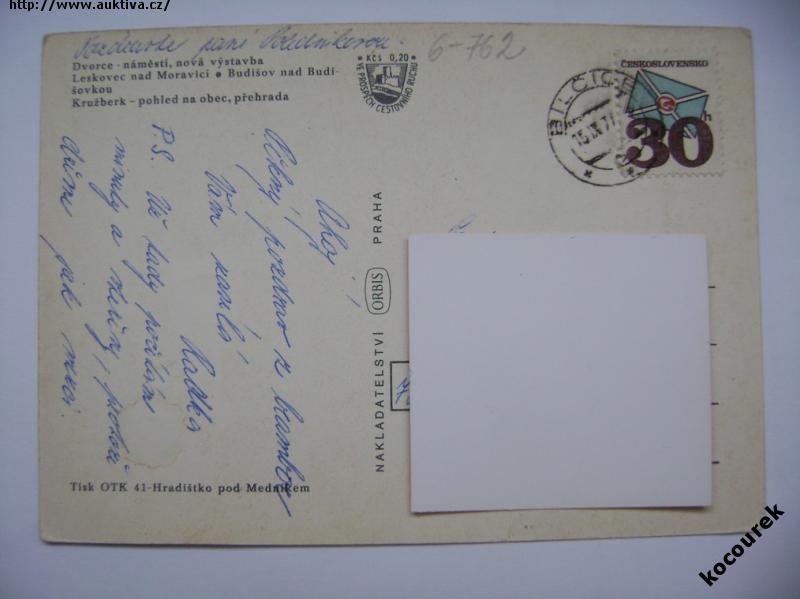 http://www.auktiva.cz/
Pozdravte paní
6-762
Dvorce - náměstí, nová výstavba
Leskovec nad Moravicí ● Budišov nad Budi-
šovkou
Kružberk - pohled na obec, přehrada
Kčs 0,20
VE PROSPĚCH CESTOVNÍHO RUCHU
ČESKOSLOVENSKO
30 h
BÍLČICE
15.IX.77
Ahoj!
Pěkný pozdrav z brambor
Vám zasílá
Radka
P.S. Už tady počítám
minuty a vteřiny, protože
dřeme jak mezci.
NAKLADATELSTVÍ ORBIS PRAHA
Tisk OTK 41-Hradištko pod Medníkem
kocourek